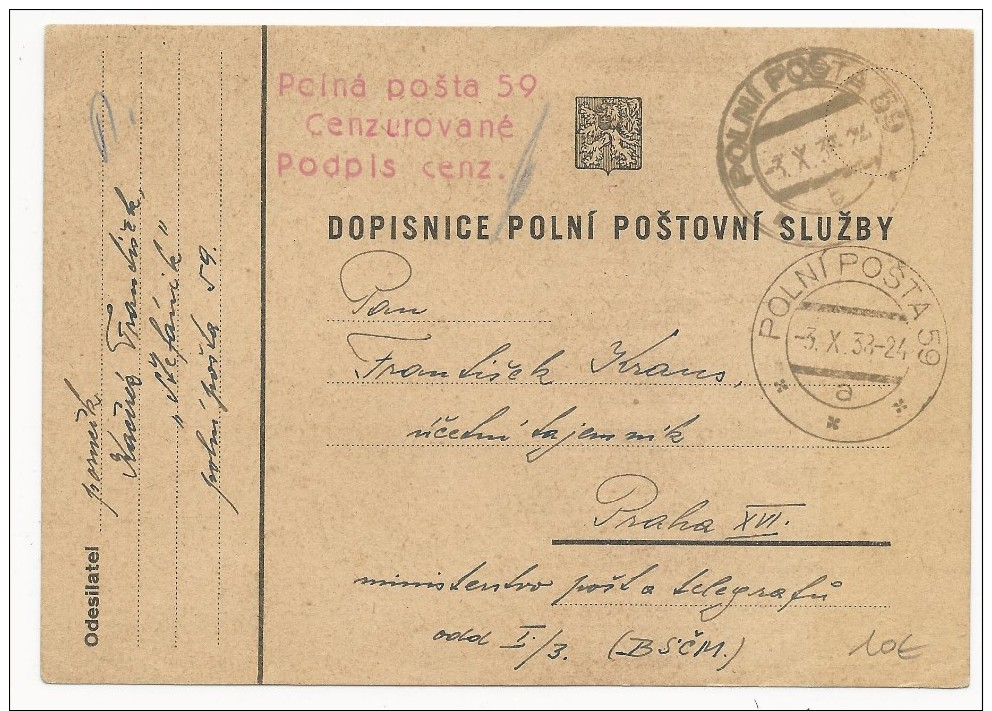 Polná pošta 59
Cenzurované
Podpis cenz.
POLNÍ POŠTA 59
-3.X.38-24
b
DOPISNICE POLNÍ POŠTOVNÍ SLUŽBY
POLNÍ POŠTA 59
-3.X.38-24
a
Pan
František Kraus,
účetní tajemník
Praha XVI.
ministerstvo pošt a telegrafů
odd I./3. (BSČM.)
10€
Odesilatel
František
„Štefánik"
polní pošta 59.